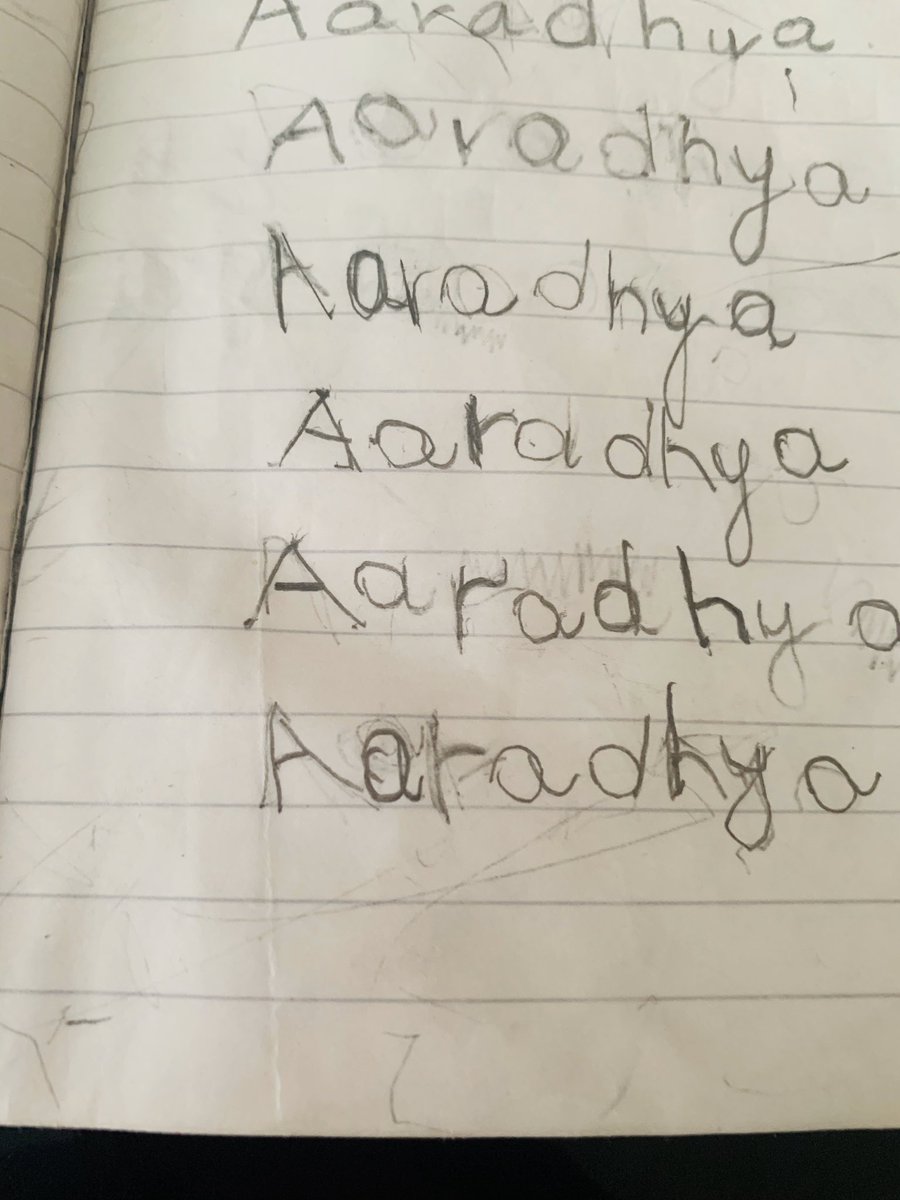 Aaradhya
Aaradhya
Aaradhya
Aaradhya
Aaradhya
Aaradhya